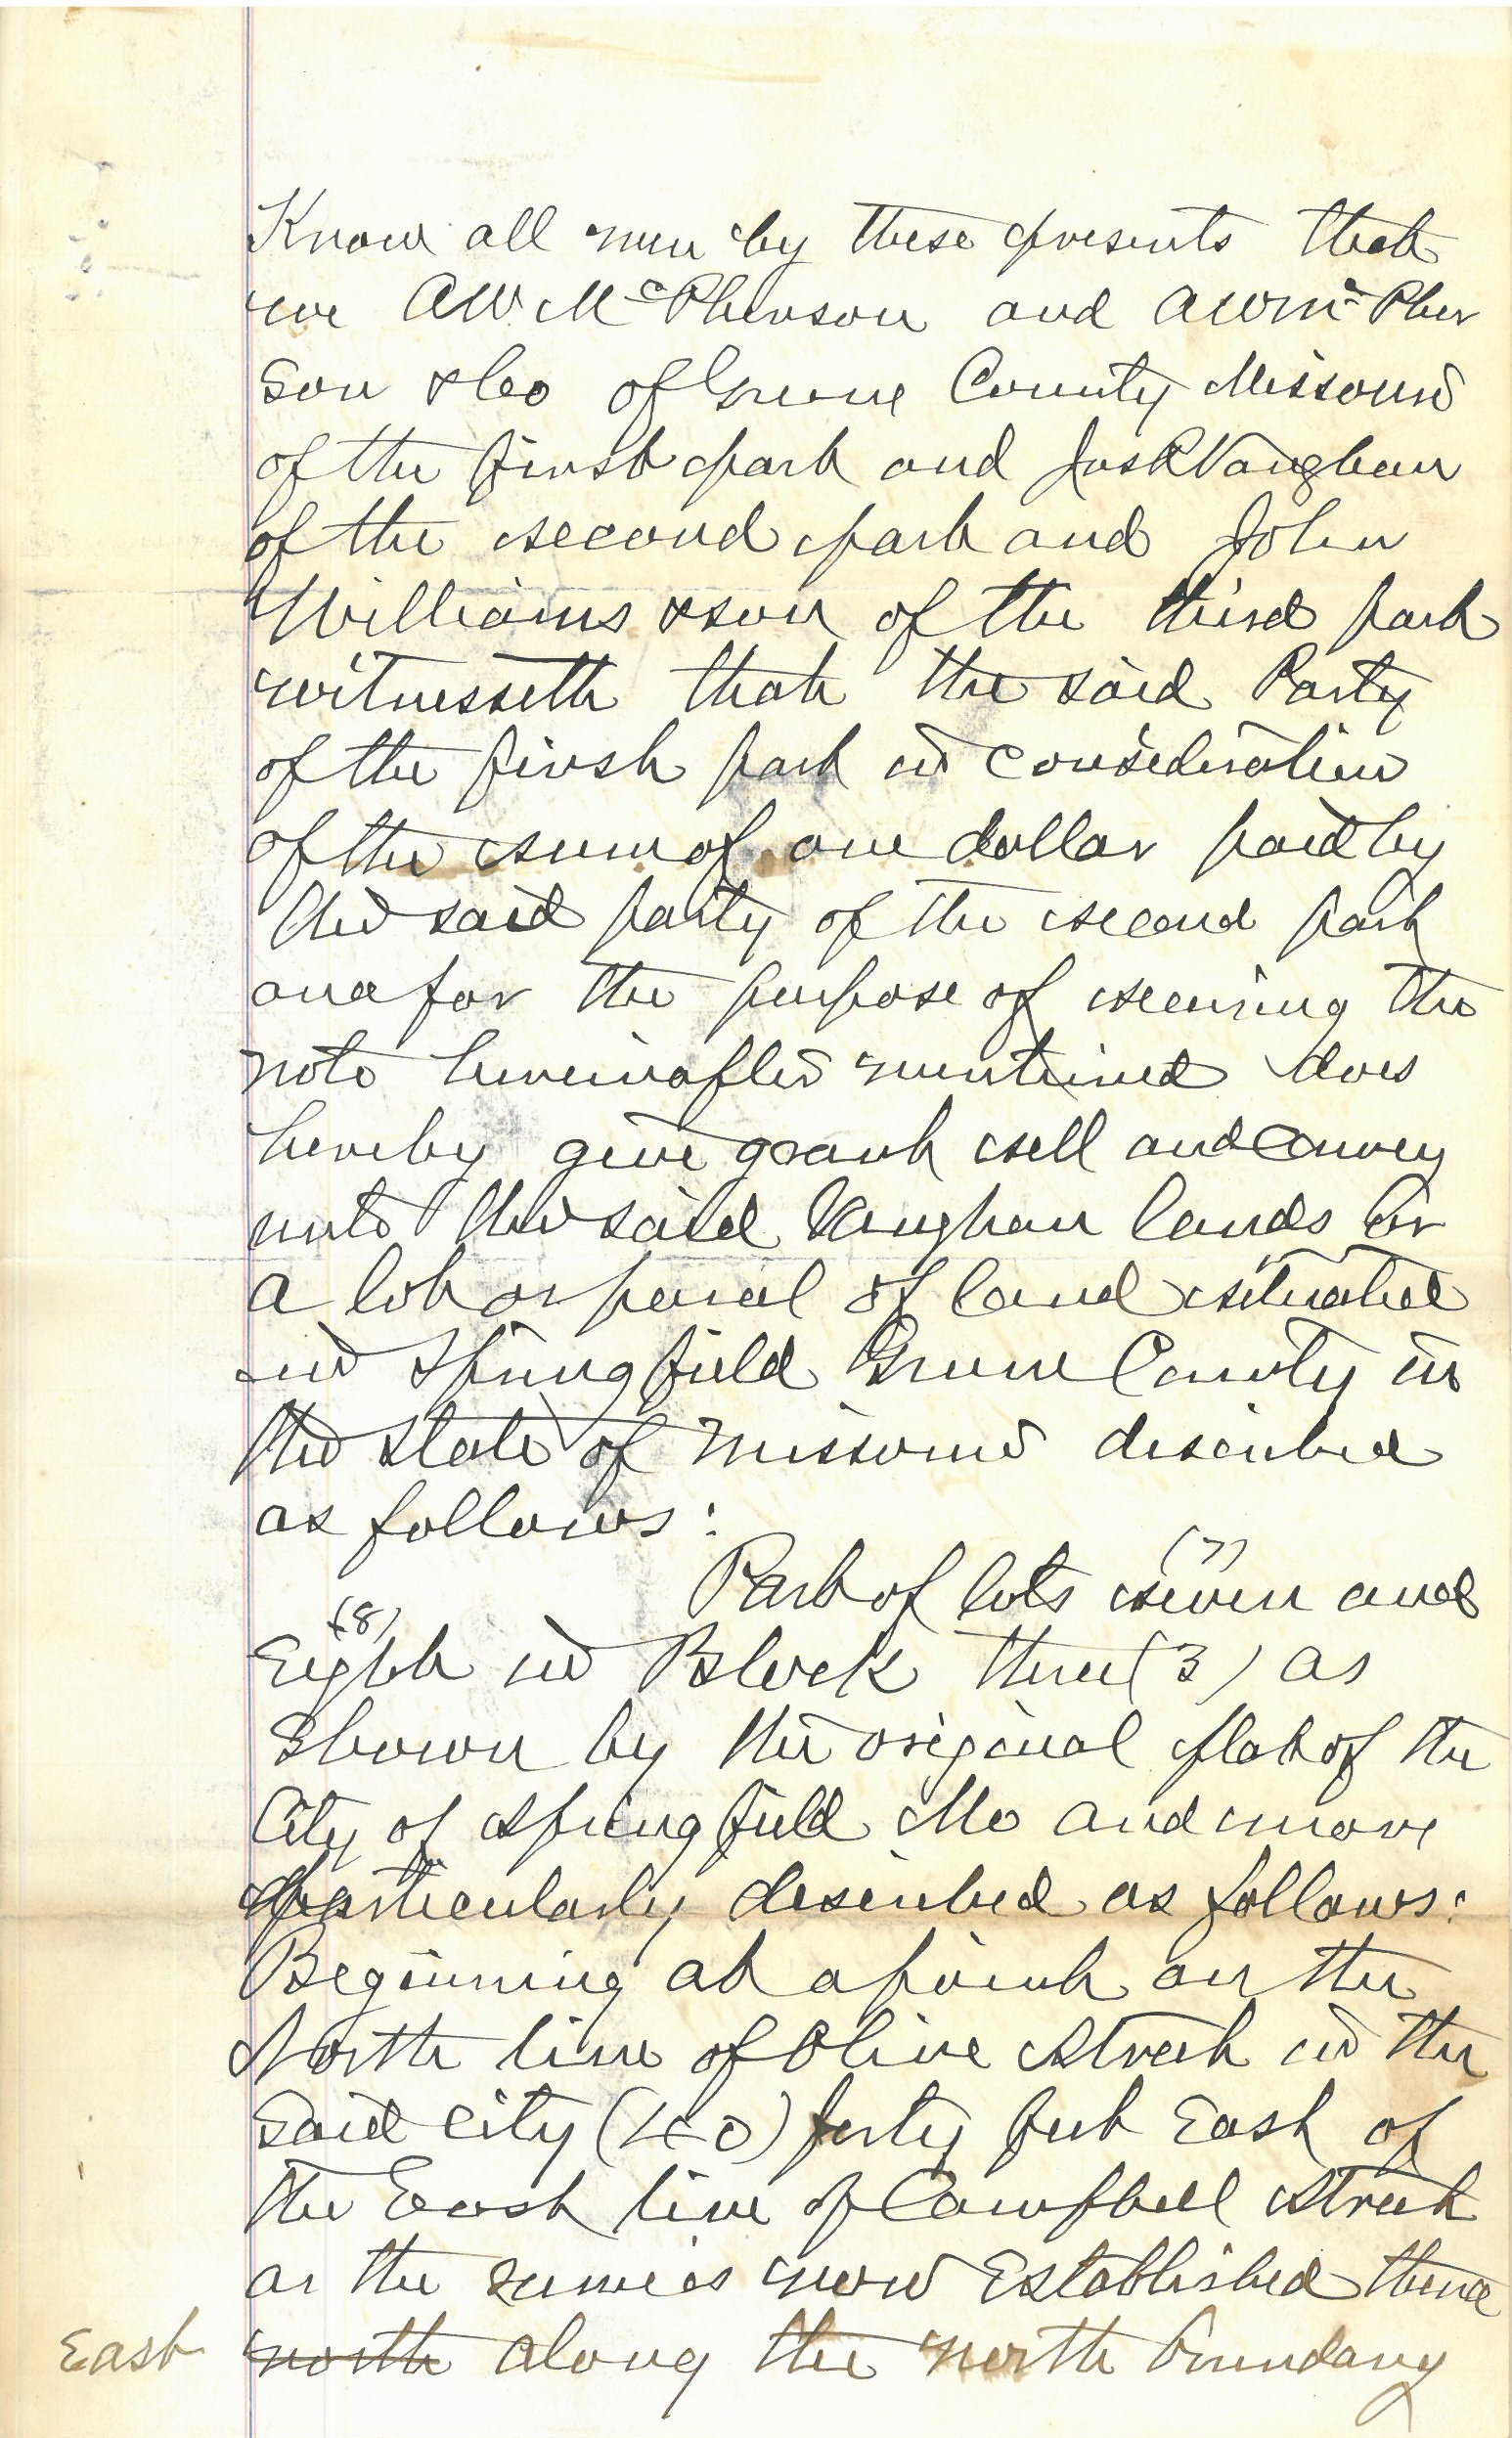 Know all men by these presents that
we AW McPherson and AW McPher
son & Co of Greene County Missouri
of the first part and Jas R Vaughan
of the second part and John
Williams & son of the third part
witnesseth that the said Party
of the first part in consideration
of the sum of one dollar paid by
the said party of the second part
and for the purpose of securing the
note hereinafter mentioned does
hereby give grant sell and convey
unto the said Vaughan lands or
a lot or parcel of land situated
in Springfield Greene County in
the State of Missouri described
as follows:
Part of lots seven (7) and
Eight (8) in Block three (3) as
shown by the original plat of the
City of Springfield Mo and more
particularly described as follows:
Beginning at a point on the
North line of Olive Street in the
said city (40) forty feet East of
the East line of Campbell Street
as the same is now Established thence
East north along the north boundary